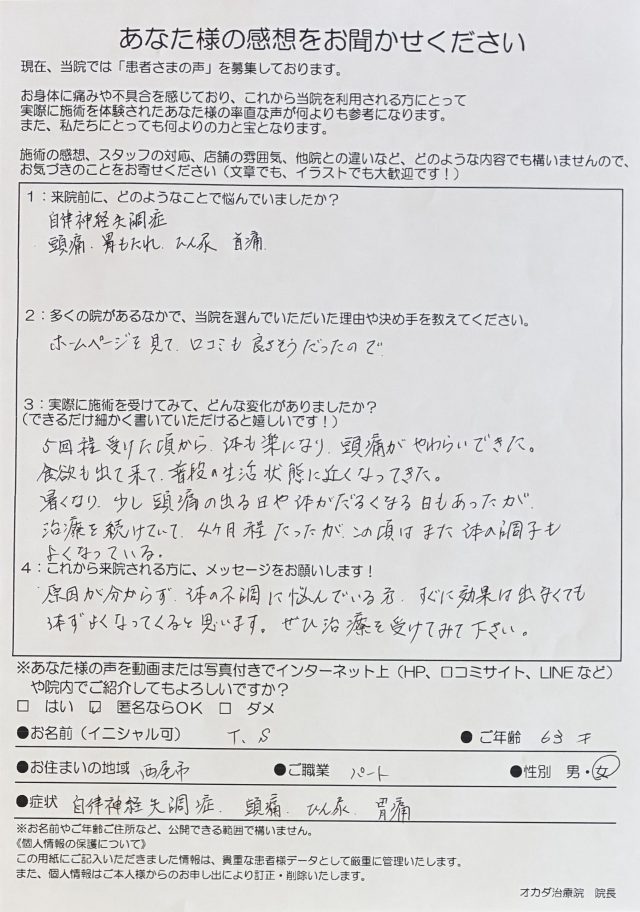 あなた様の感想をお聞かせください
現在、当院では「患者さまの声」を募集しております。
お身体に痛みや不具合を感じており、これから当院を利用される方にとって
実際に施術を体験されたあなた様の率直な声が何よりも参考になります。
また、私たちにとっても何よりの力と宝となります。
施術の感想、スタッフの対応、店舗の雰囲気、他院との違いなど、どのような内容でも構いませんので、
お気づきのことをお寄せください（文章でも、イラストでも大歓迎です！）
1：来院前に、どのようなことで悩んでいましたか？
自律神経失調症
頭痛．胃もたれ．ひん尿 首痛．
2：多くの院があるなかで、当院を選んでいただいた理由や決め手を教えてください。
ホームページを見て、口コミも良さそうだったので
3：実際に施術を受けてみて、どんな変化がありましたか？
（できるだけ細かく書いていただけると嬉しいです！）
5回程受けた頃から、体も楽になり、頭痛がやわらいできた。
食欲も出て来て、普段の生活状態に近くなってきた。
暑くなり、少し頭痛の出る日や体がだるくなる日もあったが、
治療を続けていて、4ヶ月程たったが、この頃はまた体の調子も
よくなっている。
4：これから来院される方に、メッセージをお願いします！
原因が分からず、体の不調に悩んでいる方、すぐに効果は出なくても
体ずよくなってくると思います。ぜひ治療を受けてみて下さい。
※あなた様の声を動画または写真付きでインターネット上（HP、口コミサイト、LINEなど）
や院内でご紹介してもよろしいですか？
□ はい ☑ 匿名ならOK □ ダメ
●お名前（イニシャル可） T．S ●ご年齢 63才
●お住まいの地域 西尾市 ●ご職業 パート ●性別 男・女
●症状 自律神経失調症．頭痛．ひん尿．胃痛
※お名前やご年齢ご住所など、公開できる範囲で構いません。
《個人情報の保護について》
この用紙にご記入いただきました情報は、貴重な患者様データとして厳重に管理いたします。
また、個人情報はご本人様からのお申し出により訂正・削除いたします。
オカダ治療院 院長